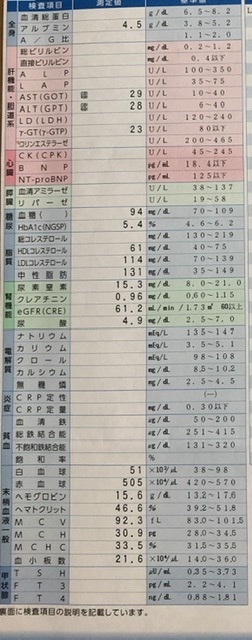 検査項目 測定値 基準値
全身 血清総蛋白 g/dL 6.5~8.2
アルブミン 4.5 g/dL 3.8~5.2
A/G比 1.1~2.0
肝機能・胆道系 総ビリルビン mg/dL 0.2~1.2
直接ビリルビン mg/dL 0.4以下
ALP U/L 100~350
LAP U/L 35~75
AST(GOT) 29 U/L 10~40
ALT(GPT) 28 U/L 6~40
LD(LDH) U/L 120~240
γ-GT(γ-GTP) 23 U/L 80以下
コリンエステラーゼ U/L 200~465
心臓 CK(CPK) U/L 45~245
BNP pg/mL 18.4以下
NT-proBNP pg/mL 125以下
膵臓 血清アミラーゼ U/L 38~137
リパーゼ U/L 19~58
糖尿 血糖( ) 94 mg/dL 70~109
HbA1c(NGSP) 5.4 % 4.6~6.2
脂質 総コレステロール mg/dL 130~219
HDLコレステロール 61 mg/dL 40~75
LDLコレステロール 114 mg/dL 70~139
中性脂肪 131 mg/dL 35~149
腎機能 尿素窒素 15.3 mg/dL 8.0~21.0
クレアチニン 0.96 mg/dL 0.60~1.15
eGFR(CRE) 61.2 mL/min/1.73㎡ 60以上
尿酸 4.9 mg/dL 2.5~7.0
電解質 ナトリウム mEq/L 135~147
カリウム mEq/L 3.5~5.1
クロール mEq/L 98~108
カルシウム mg/dL 8.5~10.2
無機燐 mg/dL 2.5~4.5
炎症 CRP定性 (−)
CRP定量 mg/dL 0.30以下
貧血 血清鉄 μg/dL 50~200
総鉄結合能 μg/dL 251~415
不飽和鉄結合能 μg/dL 131~320
飽和率 %
末梢血液一般 白血球 51 ×10²/μL 38~98
赤血球 505 ×10⁴/μL 420~570
ヘモグロビン 15.6 g/dL 13.2~17.6
ヘマトクリット 46.6 % 39.2~51.8
MCV 92.3 fL 83.0~101.5
MCH 30.9 pg 28.0~34.5
MCHC 33.5 % 31.5~35.5
血小板数 21.6 ×10⁴/μL 14.0~36.0
甲状腺 TSH μIU/mL 0.35~3.73
FT3 pg/mL 2.2~4.1
FT4 ng/dL 0.88~1.81
裏面に検査項目の説明を記載しています。